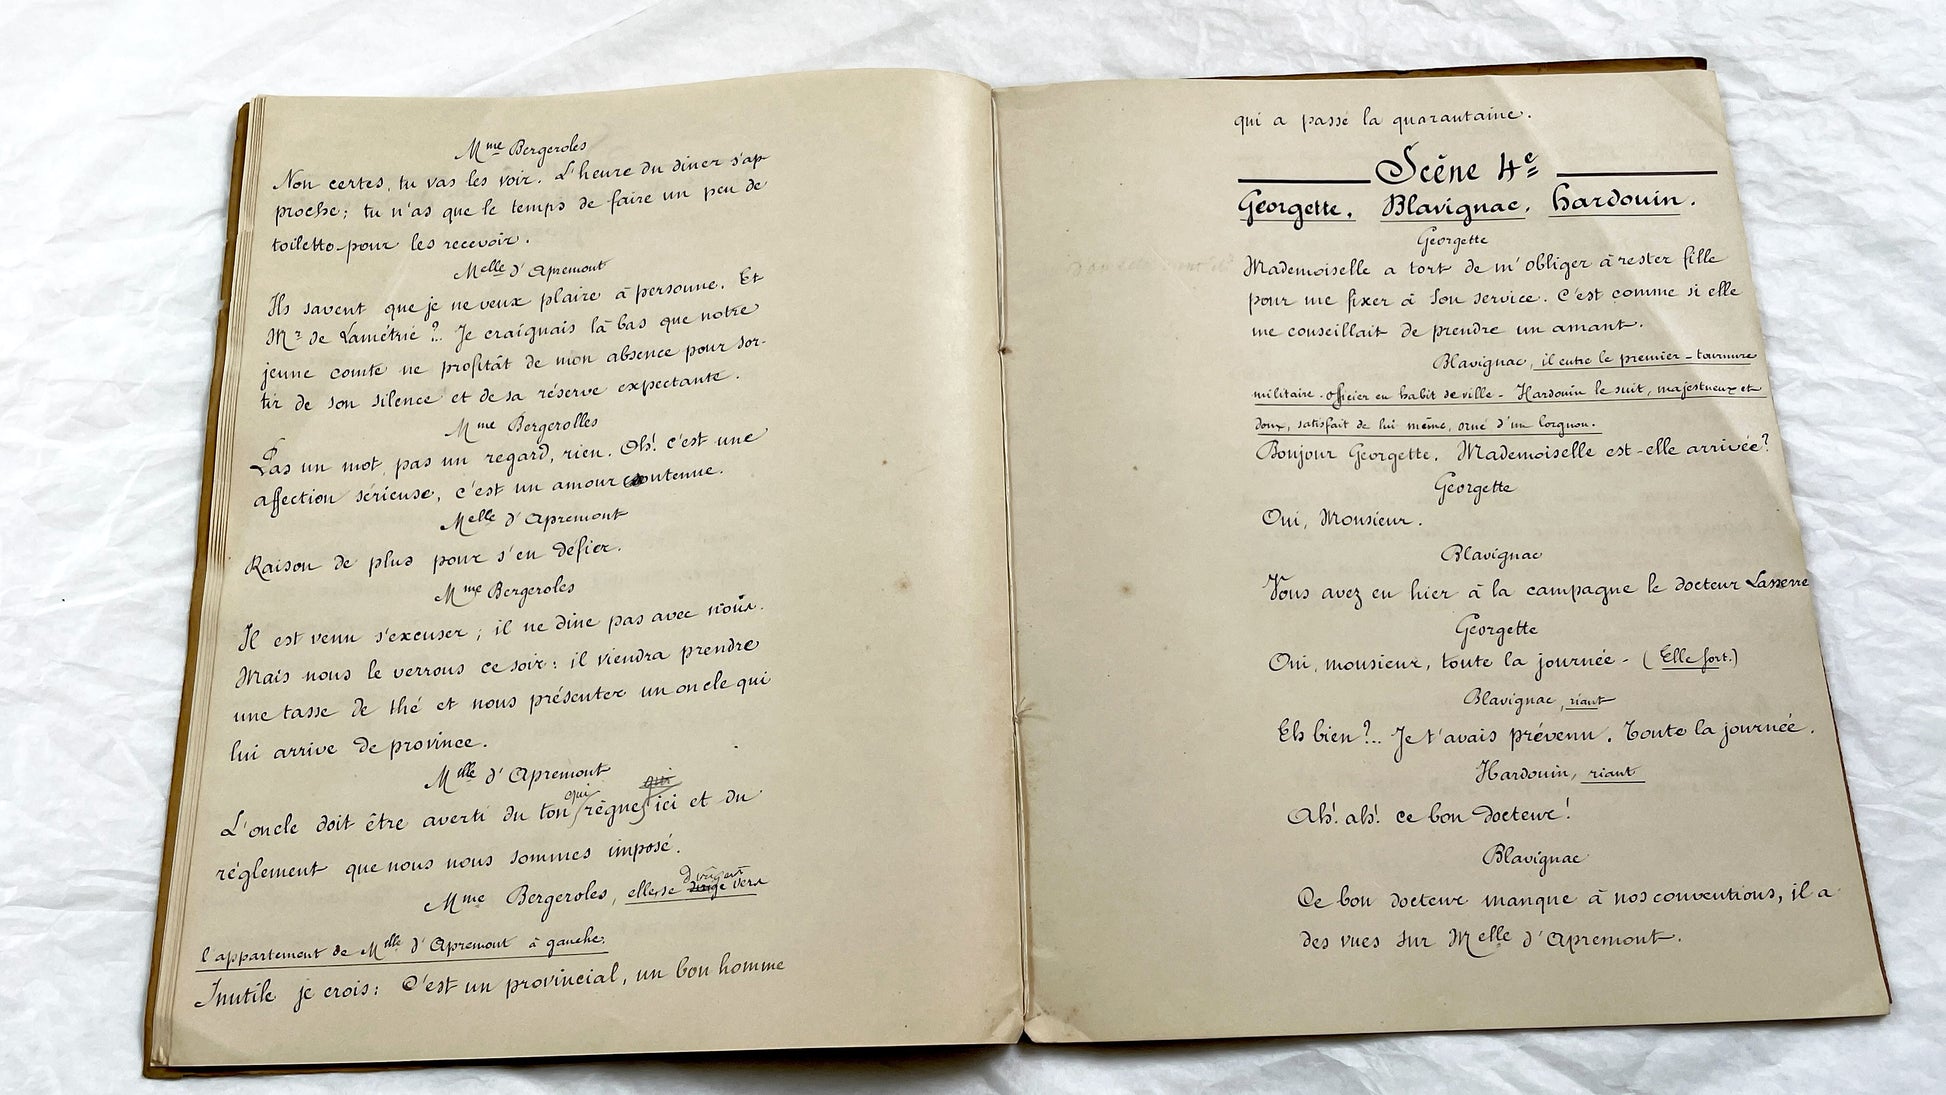 Mme Bergeroles
Non certes, tu vas les voir. L'heure du diner s'ap-
proche; tu n'as que le temps de faire un peu de
toilette pour les recevoir.
Melle d'Apremont
Ils savent que je ne veux plaire à personne. Et
Mr de Lamétrié?.. Je craignais là bas que notre
jeune comte ne profitât de mon absence pour sor-
tir de son silence et de sa réserve expectante.
Mme Bergerolles
Pas un mot, pas un regard, rien. Oh! c'est une
affection sérieuse, c'est un amour contenue.
Melle d'Apremont
Raison de plus pour s'en défier.
Mme Bergeroles
Il est venu s'excuser; il ne dine pas avec nous.
Mais nous le verrons ce soir: il viendra prendre
une tasse de thé et nous présenter un oncle qui
lui arrive de province.
Melle d'Apremont
qui
L'oncle doit être averti du ton qui règne ici et du
réglement que nous nous sommes imposé.
Mme Bergeroles, elle se dirigeant vers
l'appartement de Melle d'Apremont à gauche.
Inutile je crois: C'est un provincial, un bon homme
qui a passé la quarantaine.
Scène 4e
Georgette. Blavignac. Hardouin.
Georgette
Mademoiselle a tort de m'obliger à rester fille
pour me fixer à son service. C'est comme si elle
me conseillait de prendre un amant.
Blavignac, il entre le premier - tournure
militaire. officier en habit de ville - Hardouin le suit, majestueux et
doux, satisfait de lui même, orné d'un lorgnon.
Bonjour Georgette. Mademoiselle est-elle arrivée?
Georgette
Oui, Monsieur.
Blavignac
Vous avez eu hier à la campagne le docteur Lasserre
Georgette
Oui, monsieur, toute la journée - (Elle sort.)
Blavignac, riant
Eh bien?.. Je t'avais prévenu. Toute la journée.
Hardouin, riant
Ah! ah! ce bon docteur!
Blavignac
Ce bon docteur manque à nos conventions, il a
des vues sur Melle d'Apremont.